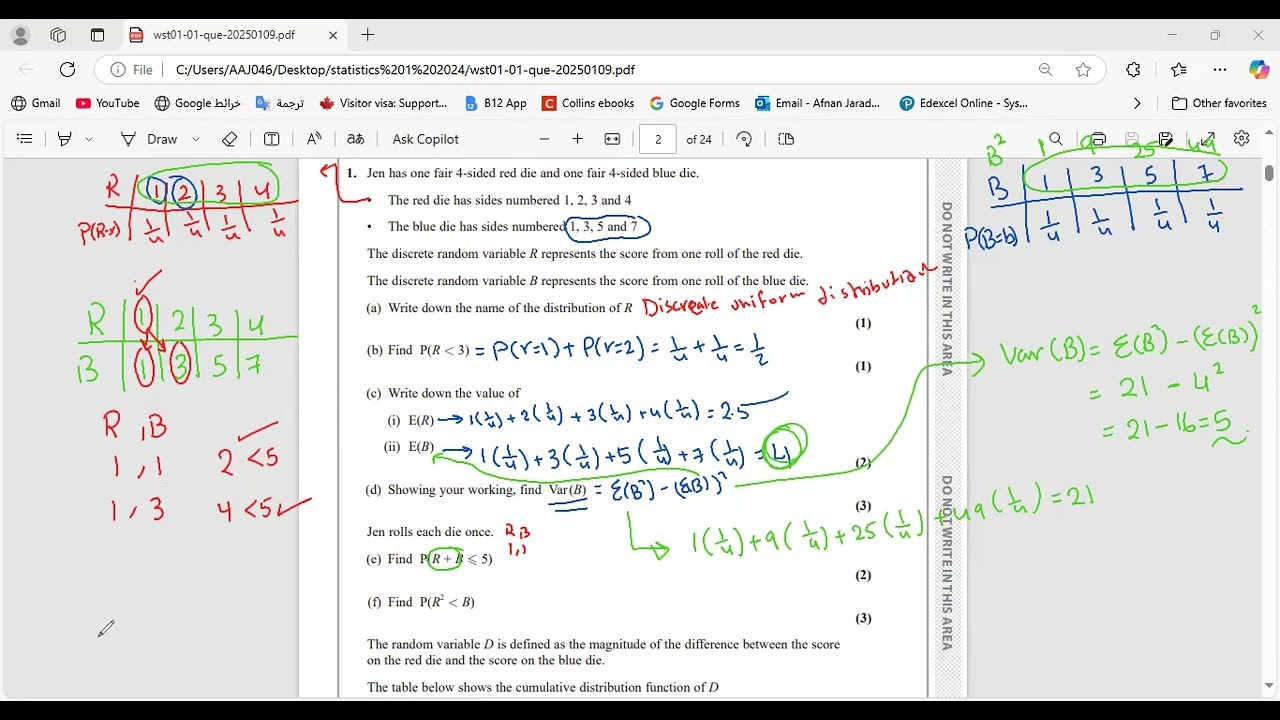 wst01-01-que-20250109.pdf
File C:/Users/AAJ046/Desktop/statistics%201%202024/wst01-01-que-20250109.pdf
Gmail YouTube خرائط Google ترجمة Visitor visa: Support... B12 App Collins ebooks Google Forms Email - Afnan Jarad... Edexcel Online - Sys... Other favorites
Draw aあ Ask Copilot 2 of 24
R 1 2 3 4
P(R=r) 1/4 1/4 1/4 1/4
B² 1 9 25 49
B 1 3 5 7
P(B=b) 1/4 1/4 1/4 1/4
1. Jen has one fair 4-sided red die and one fair 4-sided blue die.
• The red die has sides numbered 1, 2, 3 and 4
• The blue die has sides numbered 1, 3, 5 and 7
The discrete random variable R represents the score from one roll of the red die.
The discrete random variable B represents the score from one roll of the blue die.
(a) Write down the name of the distribution of R Discreate uniform distribution
(1)
(b) Find P(R < 3) = P(r=1) + P(r=2) = 1/4 + 1/4 = 1/2
(1)
(c) Write down the value of
(i) E(R) → 1(1/4) + 2(1/4) + 3(1/4) + 4(1/4) = 2.5
(ii) E(B) → 1(1/4) + 3(1/4) + 5(1/4) + 7(1/4) = 4
(2)
(d) Showing your working, find Var(B) = E(B²) - (E(B))²
(3)
1(1/4) + 9(1/4) + 25(1/4) + 49(1/4) = 21
Var(B) = E(B²) - (E(B))²
= 21 - 4²
= 21 - 16 = 5
Jen rolls each die once. R B
1,1
(e) Find P(R + B ⩽ 5)
(2)
(f) Find P(R² < B)
(3)
The random variable D is defined as the magnitude of the difference between the score
on the red die and the score on the blue die.
The table below shows the cumulative distribution function of D
R 1 2 3 4
B 1 3 5 7
R , B
1 , 1 2 < 5
1 , 3 4 < 5
DO NOT WRITE IN THIS AREA
DO NOT WRITE IN THIS AREA